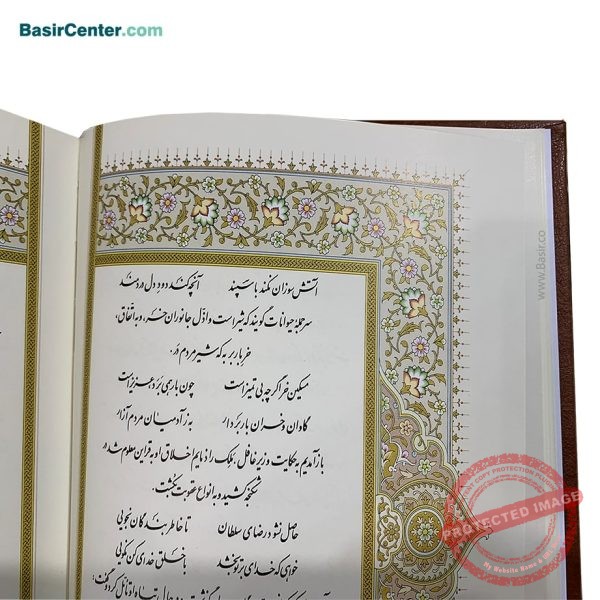 BasirCenter.com
آتش سوزان نکند با سپند آنچه کند دود دل دردمند
سر جملهٔ حیوانات گویند که شیر است و اذل جانوران خر، و به اتفاق،
خر باربر به که شیر مردم در:
مسکین خر اگر چه بی تمیز است چون بار همی برد عزیز است
گاوان و خران بار بردار به ز آدمیان مردم آزار
باز آمدیم به حکایت وزیر غافل: ملک را ذمایم اخلاق او به قراین معلوم شد،
شکنجه کشید و به انواع عقوبت بکشت.
حاصل نشود رضای سلطان تا خاطر بندگان نجویی
خواهی که خدای بر تو بخشد با خلق خدای کن نکویی
www.Basir.co
PROTECTED IMAGE